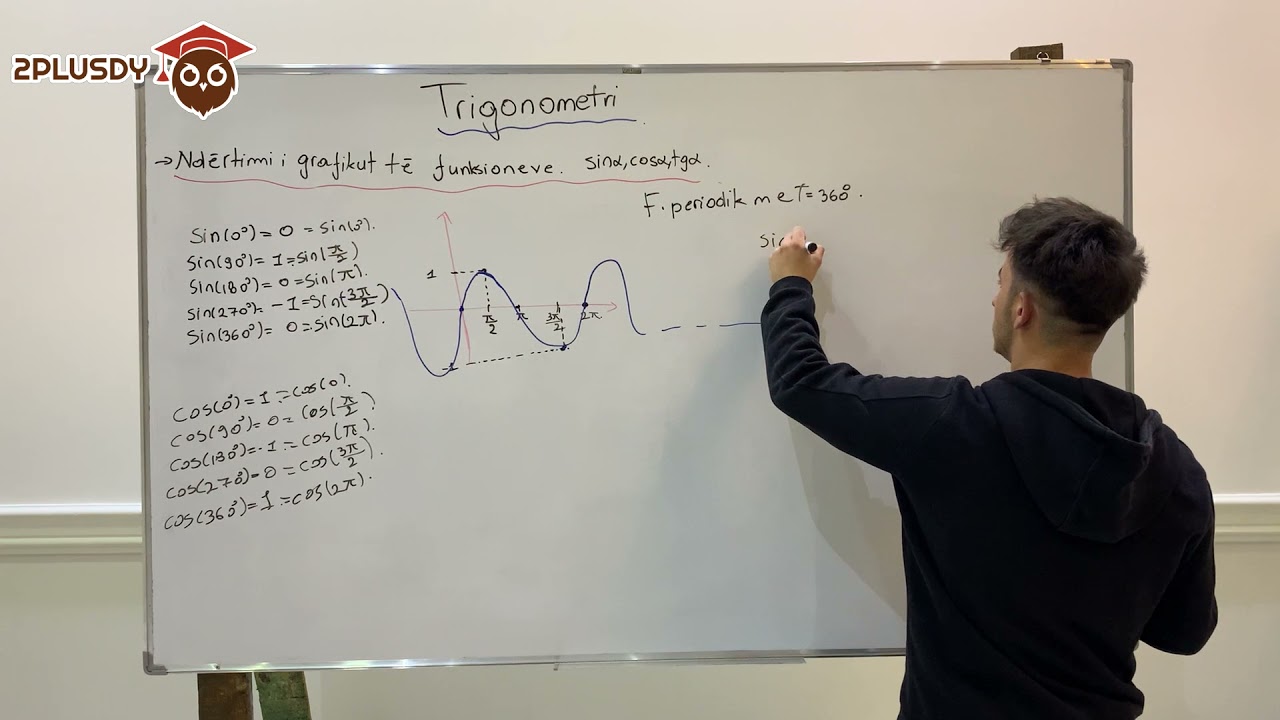 2PLUSDY
Trigonometri
→ Ndërtimi i grafikut të funksioneve. sinα, cosα, tgα.
F. periodik me T = 360°.
sin(0°) = 0 = sin(0°).
sin(90°) = 1 = sin(π/2)
sin(180°) = 0 = sin(π).
sin(270°) = -1 = sin(3π/2)
sin(360°) = 0 = sin(2π).
sin
1
π/2 π 3π/2 2π
cos(0°) = 1 = cos(0).
cos(90°) = 0 = cos(π/2).
cos(180°) = -1 = cos(π).
cos(270°) = 0 = cos(3π/2).
cos(360°) = 1 = cos(2π).